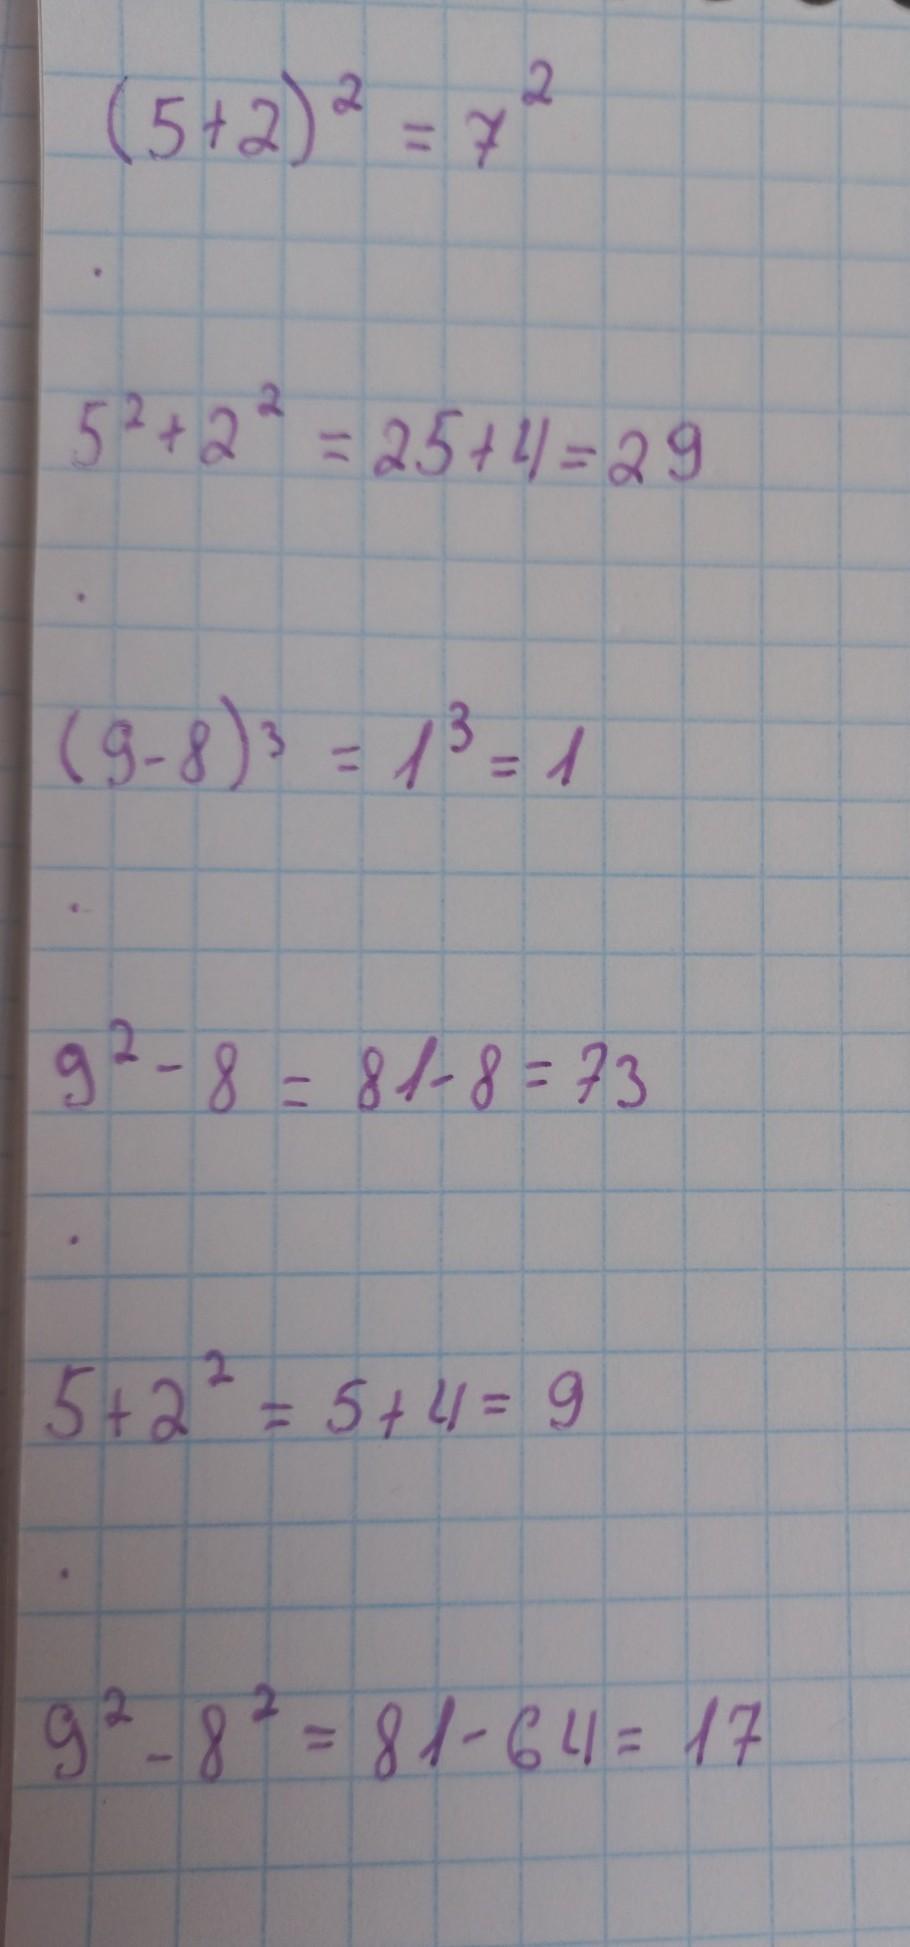 (5+2)² = 7²
5² + 2² = 25+4 = 29
(9-8)³ = 1³ = 1
9² - 8 = 81-8 = 73
5+2² = 5+4 = 9
9² - 8² = 81-64 = 17